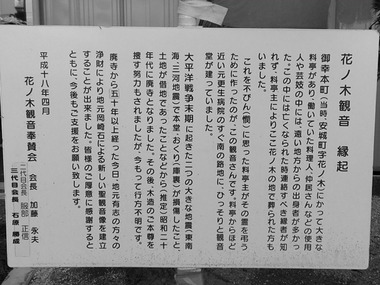 花ノ木観音 縁起
御幸本町(当時、安城町字花ノ木)にかつて大きな
料亭があり、働いていた料理人、仲居さんなどの使用
人や芸妓の中には、遠い地方からの出身者が多かっ
た。この中には亡くなられた時連絡すべき縁者が知
れず、料亭主によりここ花ノ木の地で葬られた方も
いました。
これを不びん(憫)に思った料亭主がその霊を弔う
ために作ったのが、この観音さんです。料亭からほど
近い元更生病院のすぐ南の路地に、ひっそりと観音
堂が建っていました。
太平洋戦争末期に起きた二つの大きな地震(東南
海、三河地震)で本堂、おくり(庫裏)が損傷したこと、
土地が借地であったことなどから(推定)昭和二十
年代に廃寺となりました。その後、木造のご本尊を
捜す努力もされましたが、今もって行方不明です。
廃寺から五十年以上経った今日、地元有志の方々の
浄財により地元岡崎石による新しい聖観音像を建立
することが出来ました。皆様のご厚意に感謝すると
ともに、今後もご支援をお願い致します。
平成十八年四月
花ノ木観音奉賛会 会長 加藤 永夫
二代目会長 服部 正信
三代目会長 石原 勝成